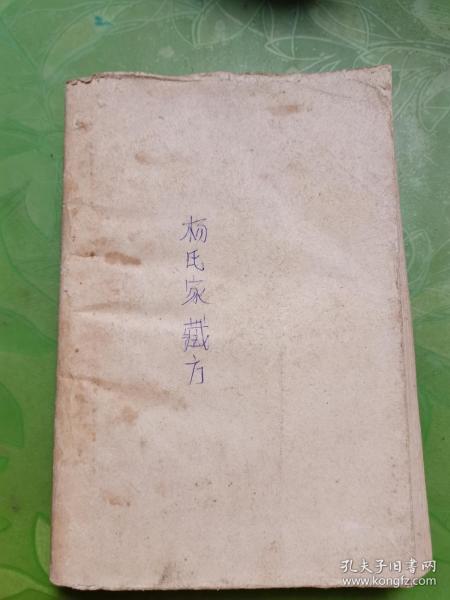 杨氏家藏方
孔夫子旧书网
www.kongfz.com